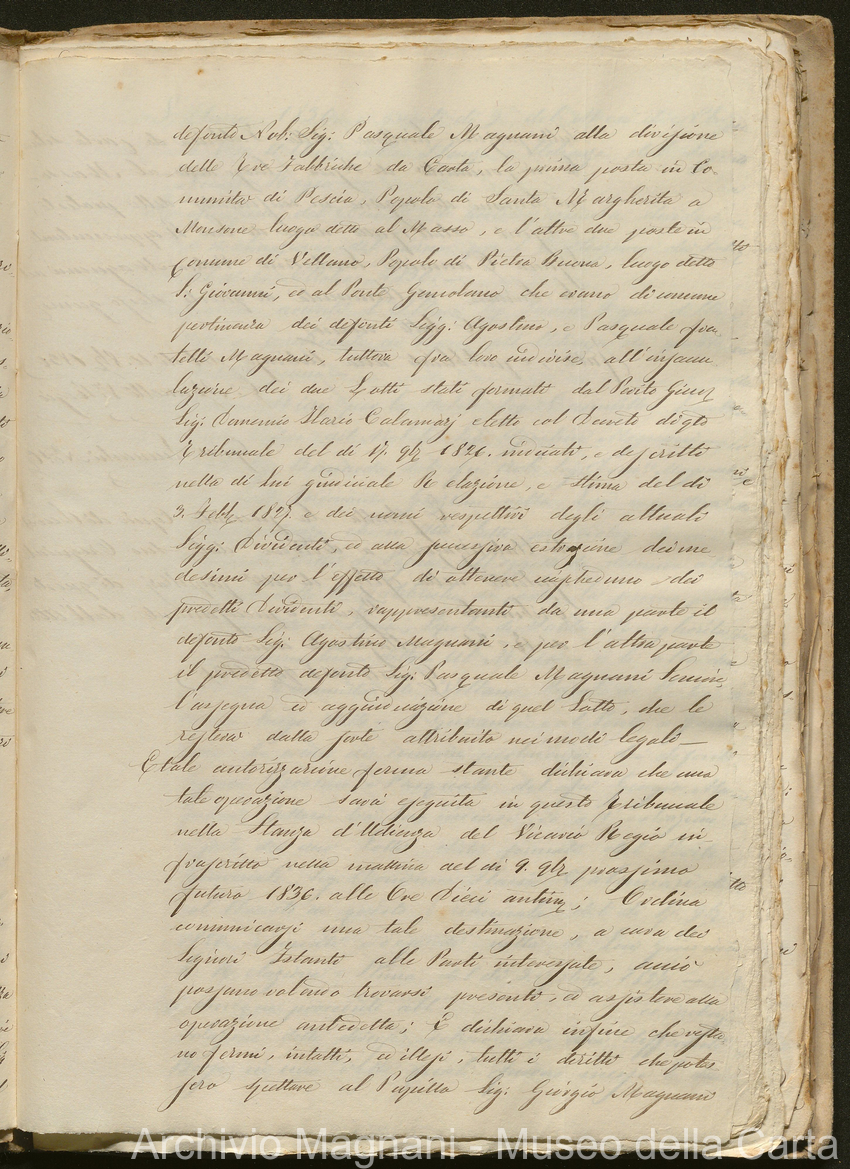 defonto Avb: Sig: Pasquale Magnani alla divisione
delle tre Fabbriche da Carta, la prima posta in Co-
munita di Pescia, Popolo di Santa Margherita a
Monsone luogo detto al Masso, e l'altre due poste in
Comune di Vellano, Popolo di Pietra Buona, luogo detto
S: Giovanni, ed al Ponte Gemolano che erano di comune
pertinenza dei defonti Sigg: Agostino, e Pasquale fra-
telli Magnani, tuttora fra loro indivise, all'insacu-
lazione dei due Lotti stati formati dal Perito Giud
Sig: Domenico Ilario Calamarj eletto col Decreto di qto
Tribunale del dì 17. 9bre 1826. indicati, e descritti
nella di Lui giudiciale Relazione, e Stima del dì
3. Febb 1827. e dei nomi respettivi degli attuali
Sigg: Dividenti, ed alla successiva estrazione dei me
desimi per l'effetto di ottenere ciascheduno dei
predetti Dividenti, rappresentanti da una parte il
defonto Sig: Agostino Magnani, e per l'altra parte
il predetto defonto Sig: Pasquale Magnani Seniore,
l'assegna ed aggiudicazione di quel Lotto, che le
resterà dalla sorte attribuito nei modi legali —
E tale autorizzazione ferma stante dichiara che una
tale operazione sarà eseguita in questo Tribunale
nella Stanza d'Udienza del Vicario Regio in-
frascritto nella mattina del dì 9. 9bre prossimo
futuro 1836. alle Ore Dieci antim; Ordina
comunicarsi una tale destinazione, a cura dei
Signori Istanti alle Parti interessate, acciò
possano volendo trovarsi presenti, ed assistere alla
operazione antedetta; E dichiara infine che resta-
no fermi, intatti, ed illesi, tutti i diritti che potes
sero spettare al Pupillo Sig: Giorgio Magnani
Archivio Magnani - Museo della Carta